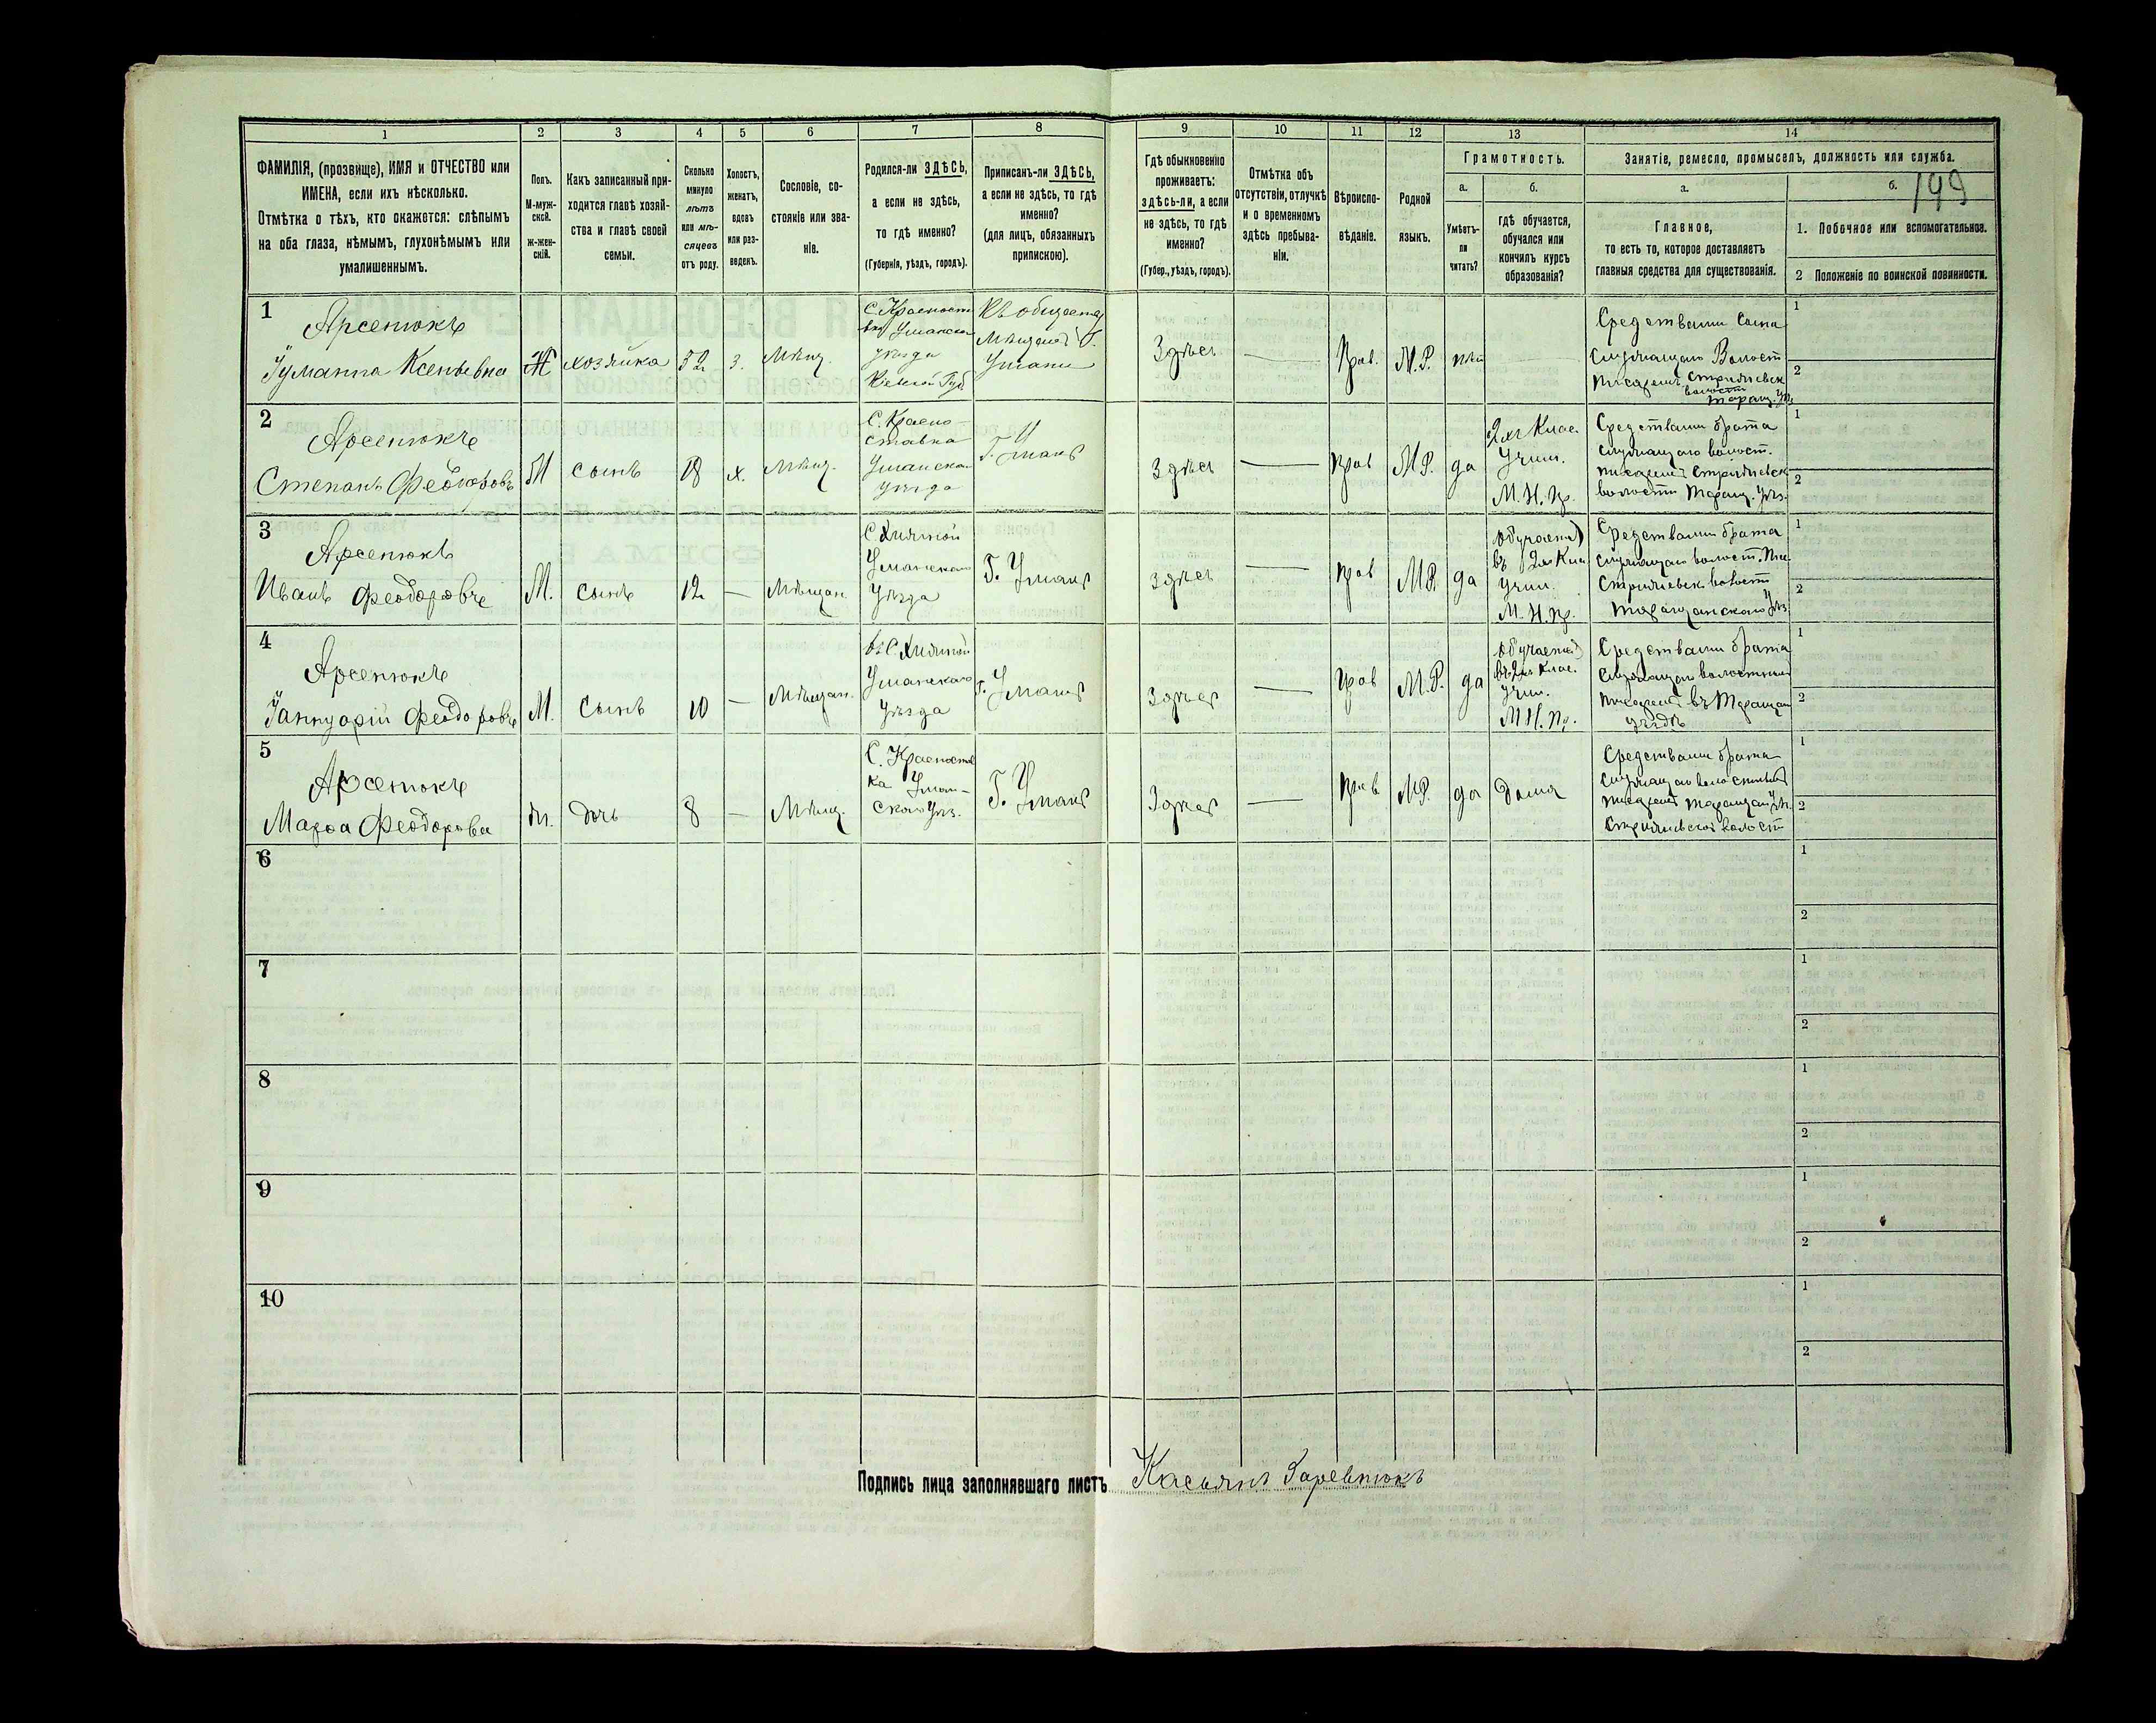 1 2 3 4 5 6 7 8 9 10 11 12 13 14
ФАМИЛІЯ, (прозвище), ИМЯ и ОТЧЕСТВО или
ИМЕНА, если ихъ нѣсколько.
Отмѣтка о тѣхъ, кто окажется: слѣпымъ
на оба глаза, нѣмымъ, глухонѣмымъ или
умалишеннымъ.
Полъ.
М-муж-
ской.
ж-жен-
скій.
Какъ записанный при-
ходится главѣ хозяй-
ства и главѣ своей
семьи.
Сколько
минуло
лѣтъ
или мѣ-
сяцевъ
отъ роду.
Холостъ,
женатъ,
вдовъ
или раз-
веденъ.
Сословіе, со-
стояніе или зва-
ніе.
Родился-ли ЗДѢСЬ,
а если не здѣсь,
то гдѣ именно?
(Губернія, уѣздъ, городъ).
Приписанъ-ли ЗДѢСЬ,
а если не здѣсь, то гдѣ
именно?
(для лицъ, обязанныхъ
припискою).
Гдѣ обыкновенно
проживаетъ:
здѣсь-ли, а если
не здѣсь, то гдѣ
именно?
(Губер., уѣздъ, городъ).
Отмѣтка объ
отсутствіи, отлучкѣ
и о временномъ
здѣсь пребыва-
ніи.
Вѣроиспо-
вѣданіе.
Родной
языкъ.
Грамотность.
а.
Умѣетъ-
ли
читать?
б.
гдѣ обучается,
обучался или
кончилъ курсъ
образованія?
Занятіе, ремесло, промыселъ, должность или служба.
а.
Главное,
то есть то, которое доставляетъ
главныя средства для существованія.
б.
149
1. Побочное или вспомогательное.
2 Положеніе по воинской повинности.
1
Арсенюкъ
Іуманна Ксеньевна
Ж
хозяйка
52
з.
Мѣщ.
уѣзда
Кіевской Губ
Мѣщанъ Г.
Умани
Здѣсь
—
Прав.
М.Р.
нѣт
—
Средствами сына
служащаго Волост
Писаремъ
волости
Таращ. Уѣз.
1
2
2
Арсенюкъ
Степанъ Феодоровъ
М
сынъ
18
х.
Мѣщ.
С. Красно
ставка
Уманска
уѣзда
Г. Умань
Здѣсь
—
Прав
М.Р.
да
2хъ Клас.
Учил.
М.Н.Пр.
Средствами брата
служащаго волост.
писаремъ
волости Таращ. Уѣз.
1
2
3
Арсенюкъ
Иванъ Феодоровъ
М.
Сынъ
12
—
Мѣщан.
Уманскаго
Уѣзда
Г. Умань
здѣсь
—
Прав
М.Р.
да
обучается
въ 2хъ Кл
Учил.
М.Н.Пр.
Средствами брата
служащаго волост. Пи
волост
Таращанскаго Уѣз
1
2
4
Арсенюкъ
Іаннуарій Феодоровъ
М.
Сынъ
10
—
Мѣщан.
Уманскаго
Уѣзда
Г. Умань
Здѣсь
—
Прав
М.Р.
да
обучается
въ 2хъ Клас.
Учил.
М.Н.Пр.
Средствами брата
служащаго волостным
писаремъ въ Таращан
уѣздѣ
1
2
5
Арсенюкъ
Марѳа Феодорова
дочь
8
—
Мѣщ.
С. Красностав
ка Уман-
скаго Уѣз.
Г. Умань
Здѣсь
—
Прав
М.Р.
да
дома
Средствами брата
служащаго волостным
писаремъ Таращан Уѣз.
волост
1
2
6
1
2
7
1
2
8
1
2
9
1
2
10
1
2
Подпись лица заполнявшаго листъ Касьянъ